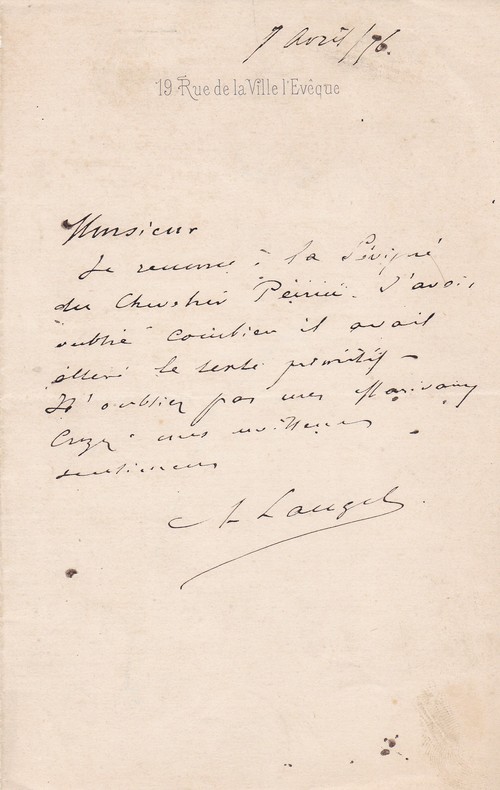 7 Avril/76.
19 Rue de la Ville l'Evêque
Monsieur
Je renonce à la Sévigné
du Chevalier Perrin. J'avois
oublié combien il avait
altéré le texte primitif –
N'oubliez pas mes
Croyez à mes meilleurs
sentiments
A Laugel.